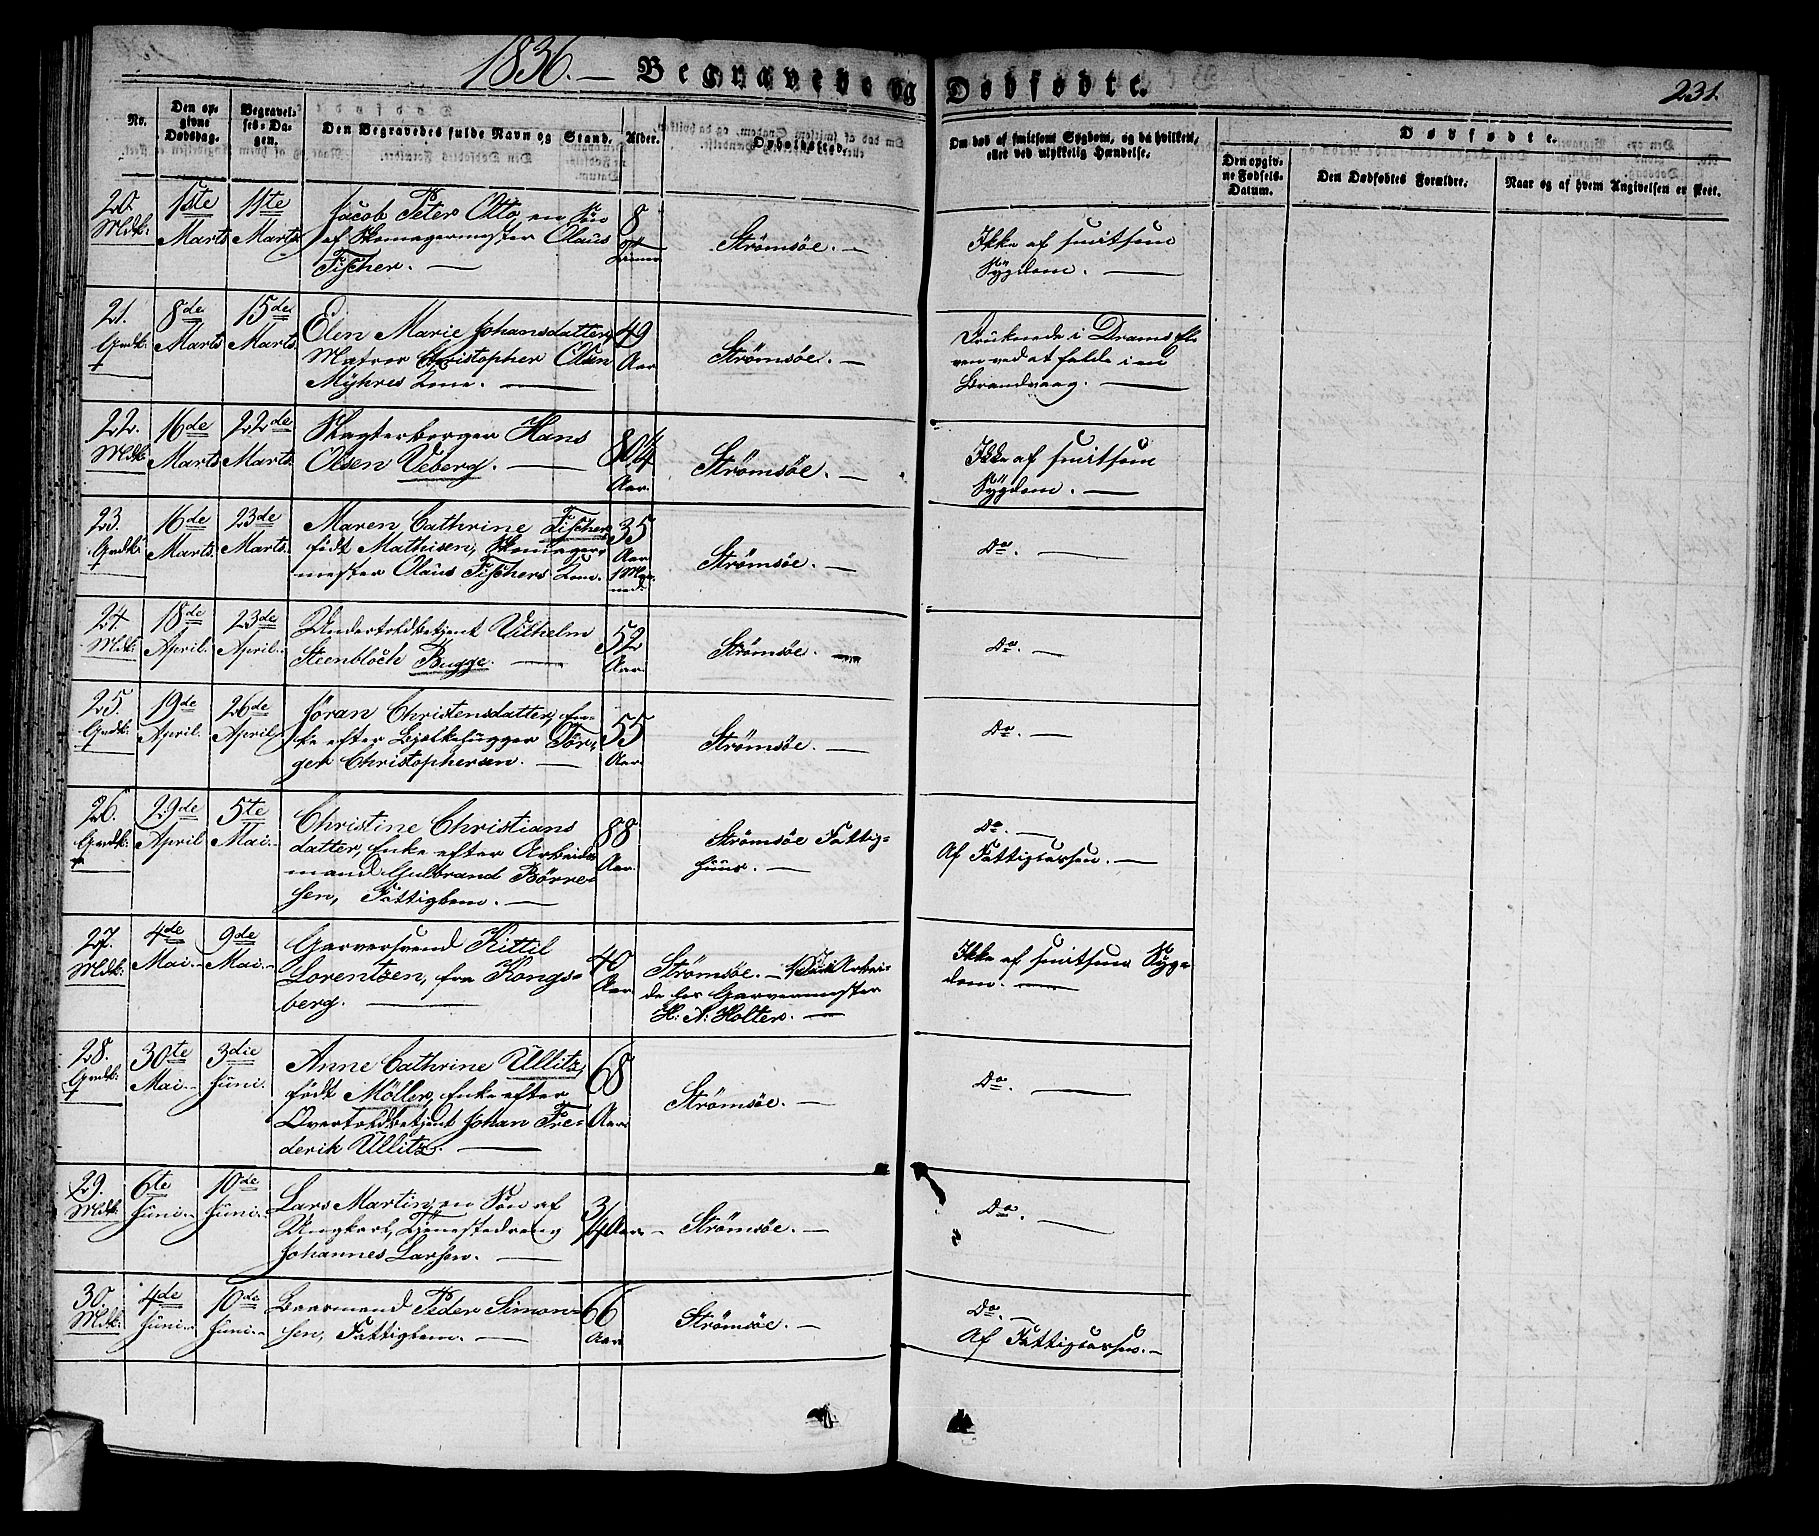 1836. — Begravede og Dødfødte.
231.
No.
Den opgivne Dødsdag.
Begravelses-Dagen.
Den Begravedes fulde Navn og Stand.
Alder.
Opholdssted.
Om død af smitsom Sygdom, og da hvilken, eller ved ulykkelig Hændelse.
Dødfødte.
Den opgivne Fødsels-Datum.
Den Dødfødtes Forældre.
Naar og af hvem Angivelsen er skeet.
20. Mdk:
1ste Marts
11te Marts
Jacob Peter Otto, en Søn
af Skomagermester Olaus
Fischer. —
8
Strømsøe. —
Ikke af smitsom
Sygdom. —
21. Qvdk:
8de Marts
15de Marts.
Elen Marie Johansdatter,
Matros Christopher Olsen
Myhres Kone. —
49 Aar
Strømsøe. —
Druknede i Drams Elven
ved at falde i en
Brandvaag. —
22. Mdk:
16de Marts
22de Marts.
Slagterborger Hans
Olsen Veberg. —
84 Aar.
Strømsøe. —
Ikke af smitsom
Sygdom. —
23. Qvdk:
16de Marts
23de Marts.
Maren Cathrine Fischer,
født Mathisen, Skomager-
mester Olaus Fischers Kone.
35 Aar 1 Maaned.
Strømsøe. —
Do. —
24. Mdk:
18de April.
23de April.
Undertoldbetjent Vilhelm
Steenbloch Bugge. —
52 Aar
Strømsøe. —
Do. —
25. Qvdk:
19de April.
26de April.
Jøran Christensdatter, En-
ke efter Bjelkehugger Tør-
ger Christophersen. —
55 Aar
Strømsøe. —
Do. —
26. Qvdk:
29de April
5te Mai.
Christine Christians
datter, Enke efter Arbeids
mand Gulbrand Børre-
sen, Fattiglem. —
88 Aar.
Strømsøe Fattig-
huus. —
Do. —
Af Fattigcassen. —
27. Mdk:
4de Mai.
9de Mai.
Garversvend Kittil
Lorentzen, fra Kongs-
berg. —
40 Aar
Strømsøe. — i Arbei-
de hos Garvermester
H: A: Holter. —
Ikke af smitsom Syg-
dom. —
28. Qvdk:
30te Mai.
3die Juni.
Anne Cathrine Ullitz,
født Möller, Enke efter
Overtoldbetjent Johan Fre-
derik Ullitz. —
68 Aar
Strømsøe. —
Do. —
29. Mdk:
6te Juni.
10de Juni.
Lars Martin, en Søn af
Ungkarl, Tjenestedreng
Johannes Larsen. —
3/4 Aar. —
Strømsøe. —
Do. —
30. Mdk:
4de Juni.
10de Juni.
Baarmand Peder Simon-
sen, Fattiglem. —
66 Aar
Strømsøe. —
Do. —
Af Fattigcassen. —